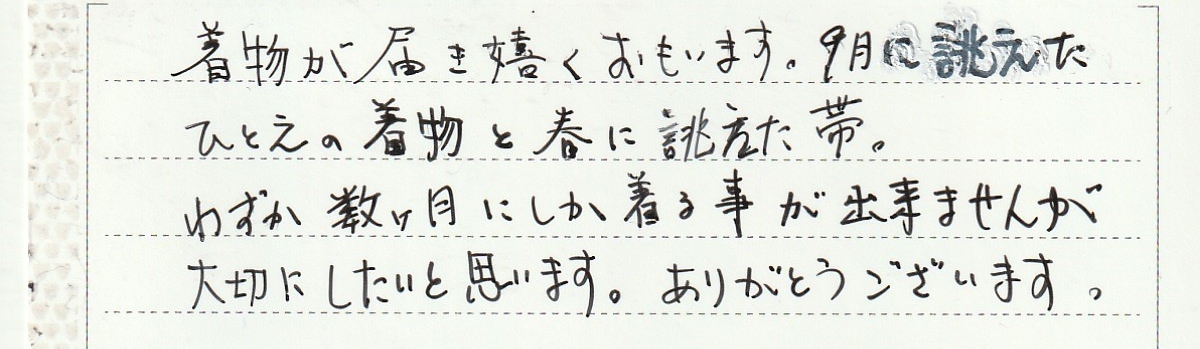 着物が届き嬉くおもいます。9月に誂えた
ひとえの着物と春に誂えた帯。
わずか数ヶ月にしか着る事が出来ませんが
大切にしたいと思います。ありがとうございます。